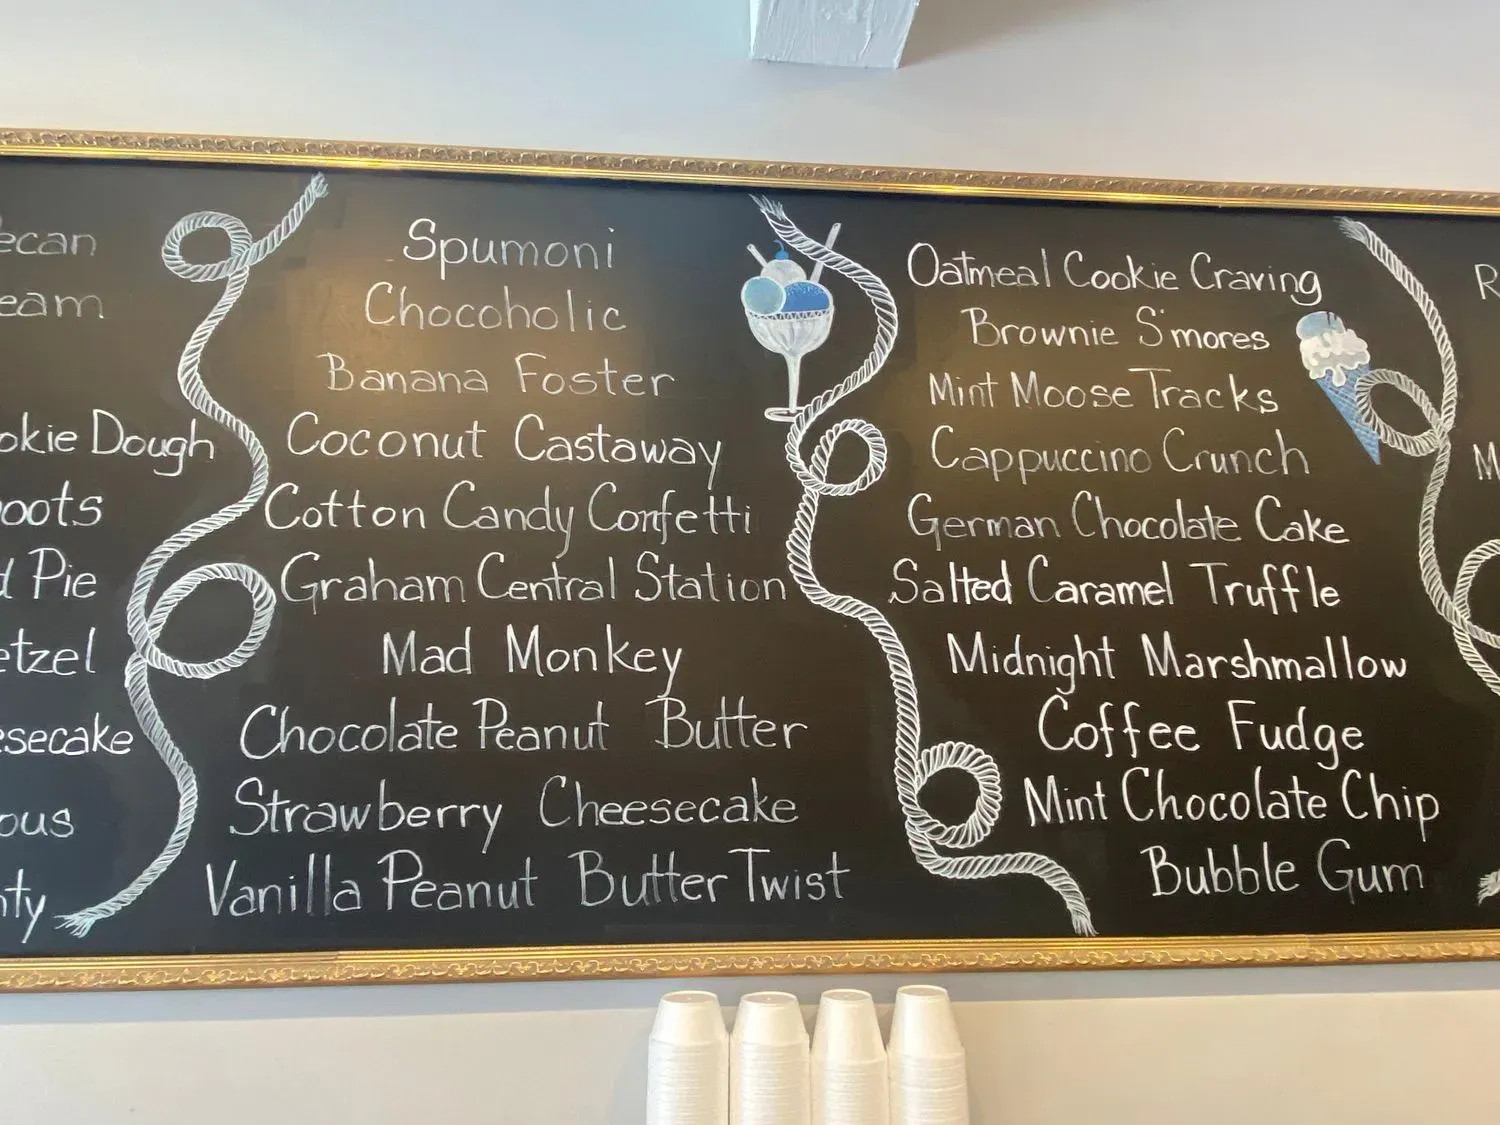 ecan
eam
okie Dough
oots
d Pie
etzel
esecake
ous
nty
Spumoni
Chocoholic
Banana Foster
Coconut Castaway
Cotton Candy Confetti
Graham Central Station
Mad Monkey
Chocolate Peanut Butter
Strawberry Cheesecake
Vanilla Peanut Butter Twist
Oatmeal Cookie Craving
Brownie S'mores
Mint Moose Tracks
Cappuccino Crunch
German Chocolate Cake
Salted Caramel Truffle
Midnight Marshmallow
Coffee Fudge
Mint Chocolate Chip
Bubble Gum
R
M